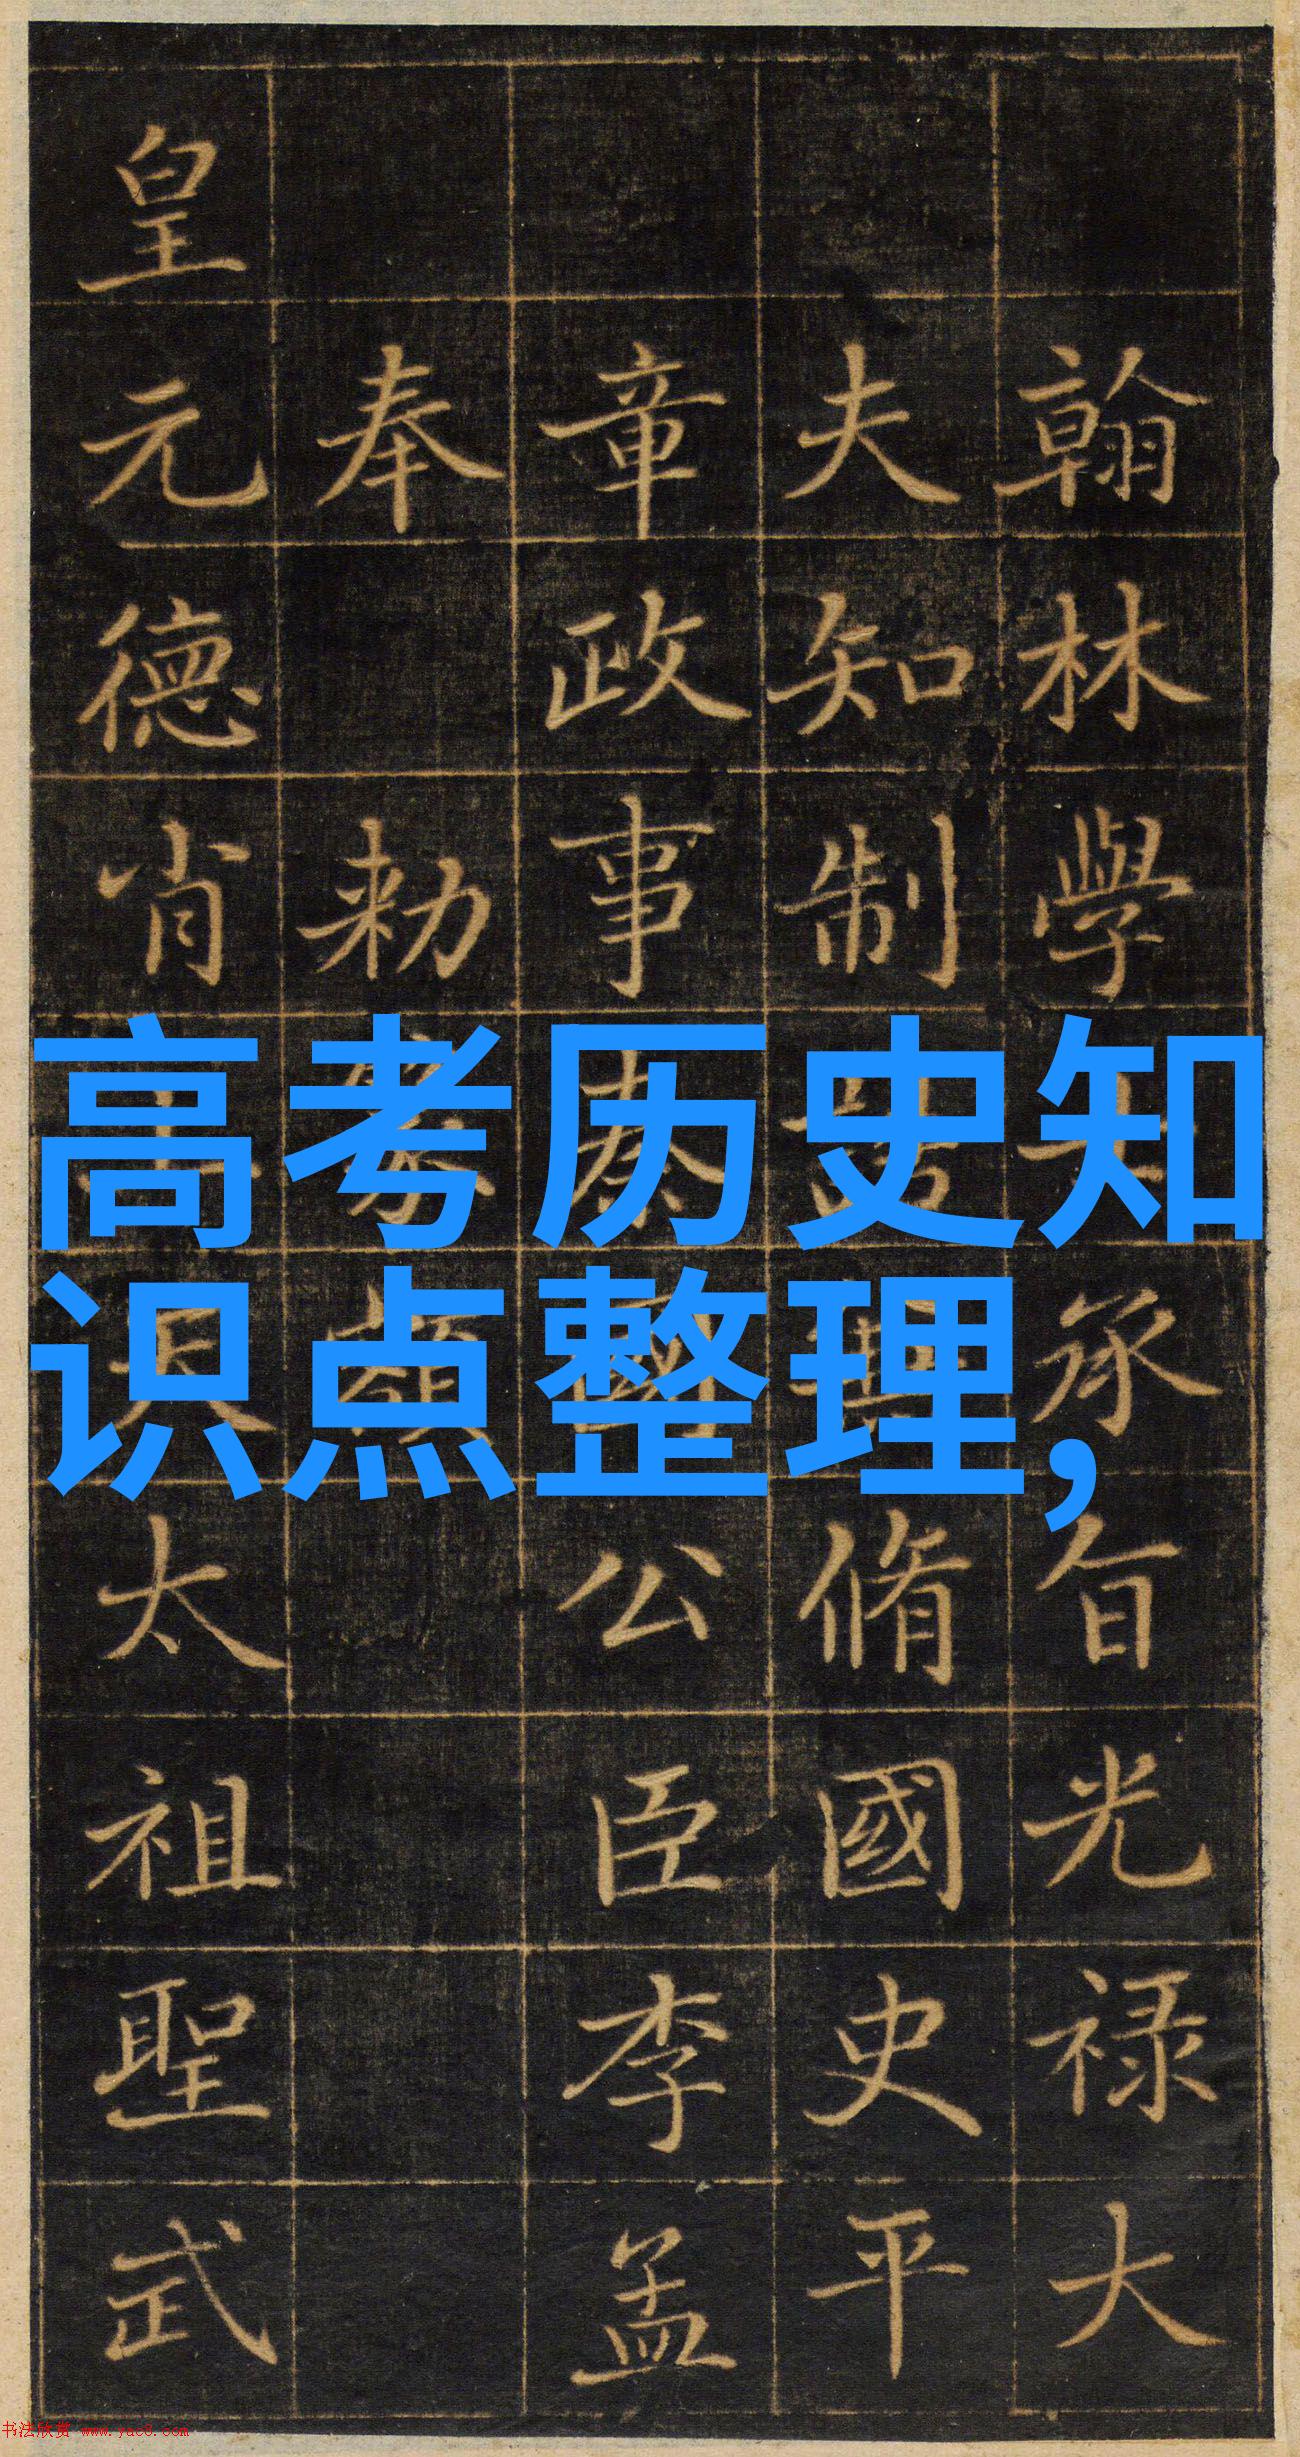 高考历史知
识点整理,
翰林學士承旨光禄大
夫知制誥兼脩國史平
章政事秦國公臣李孟
奉敕篆額
皇元德肖天太祖聖武
书法欣赏 www.yac8.com